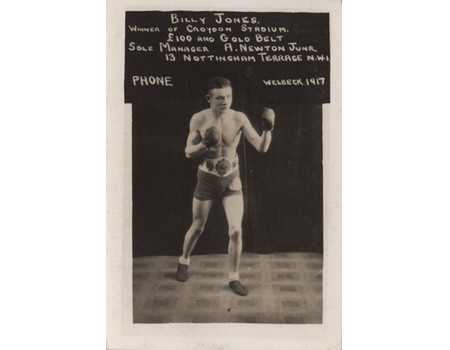 Billy Jones.
Winner of Croydon Stadium.
£100 and Gold Belt
Sole Manager A. Newton Junr.
13 Nottingham Terrace N.W.1
Phone Welbeck 1917